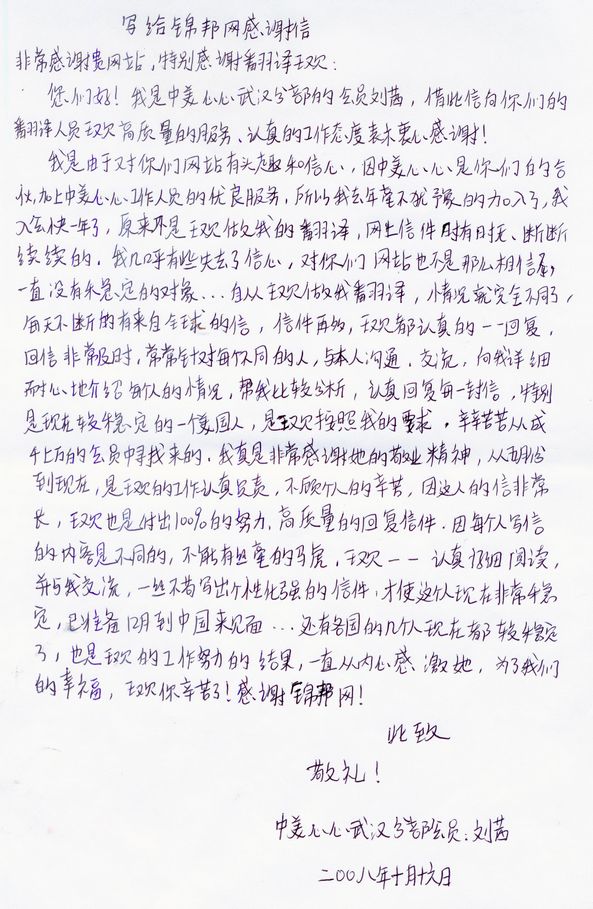 写给锦邦网感谢信
非常感谢贵网站，特别感谢翻译王欢：
您们好！我是中美心心武汉分部的会员刘茜，借此信向你们的
翻译人员王欢高质量的服务、认真的工作态度表未衷心感谢！
我是由于对你们网站有兴趣和信心，因中美心心是你们的合
伙，加上中美心心工作人员的优良服务，所以我去年毫不犹豫的加入了，我
入会快一年了，原来不是王欢做我的翻译，网上信件时有日无、断断
续续的，我几乎有些失去了信心，对你们网站也不是那么相信，
一直没有稳定的对象...自从王欢做我翻译，情况就完全不同了，
每天不断的有来自全球的信，信件再多，王欢都认真的一一回复，
回信非常及时，常常针对每个不同的人，与本人沟通，交流，向我详细
耐心地介绍每个人的情况，帮我比较分析，认真回复每一封信，特别
是现在较稳定的一个美国人，是王欢按照我的要求，辛辛苦苦从成
千上万的会员中寻找来的，我真是非常感谢她的敬业精神，从五月份
到现在，是王欢的工作认真负责，不顾个人的辛苦，因这人的信非常
长，王欢也是付出100%的努力，高质量的回复信件，因每个人写信
的内容是不同的，不能有丝毫的马虎，王欢一一认真仔细阅读，
并与我交流，一丝不苟写出个性化强的信件，才使这个人现在非常稳
定，已准备12月到中国来见面...还有各国的几个人现在都较稳定
了，也是王欢的工作努力的结果，一直从内心感激她，为了我们
的幸福，王欢你辛苦了！感谢锦邦网！
此致
敬礼！
中美心心武汉分部会员：刘茜
二00八年十月十六日